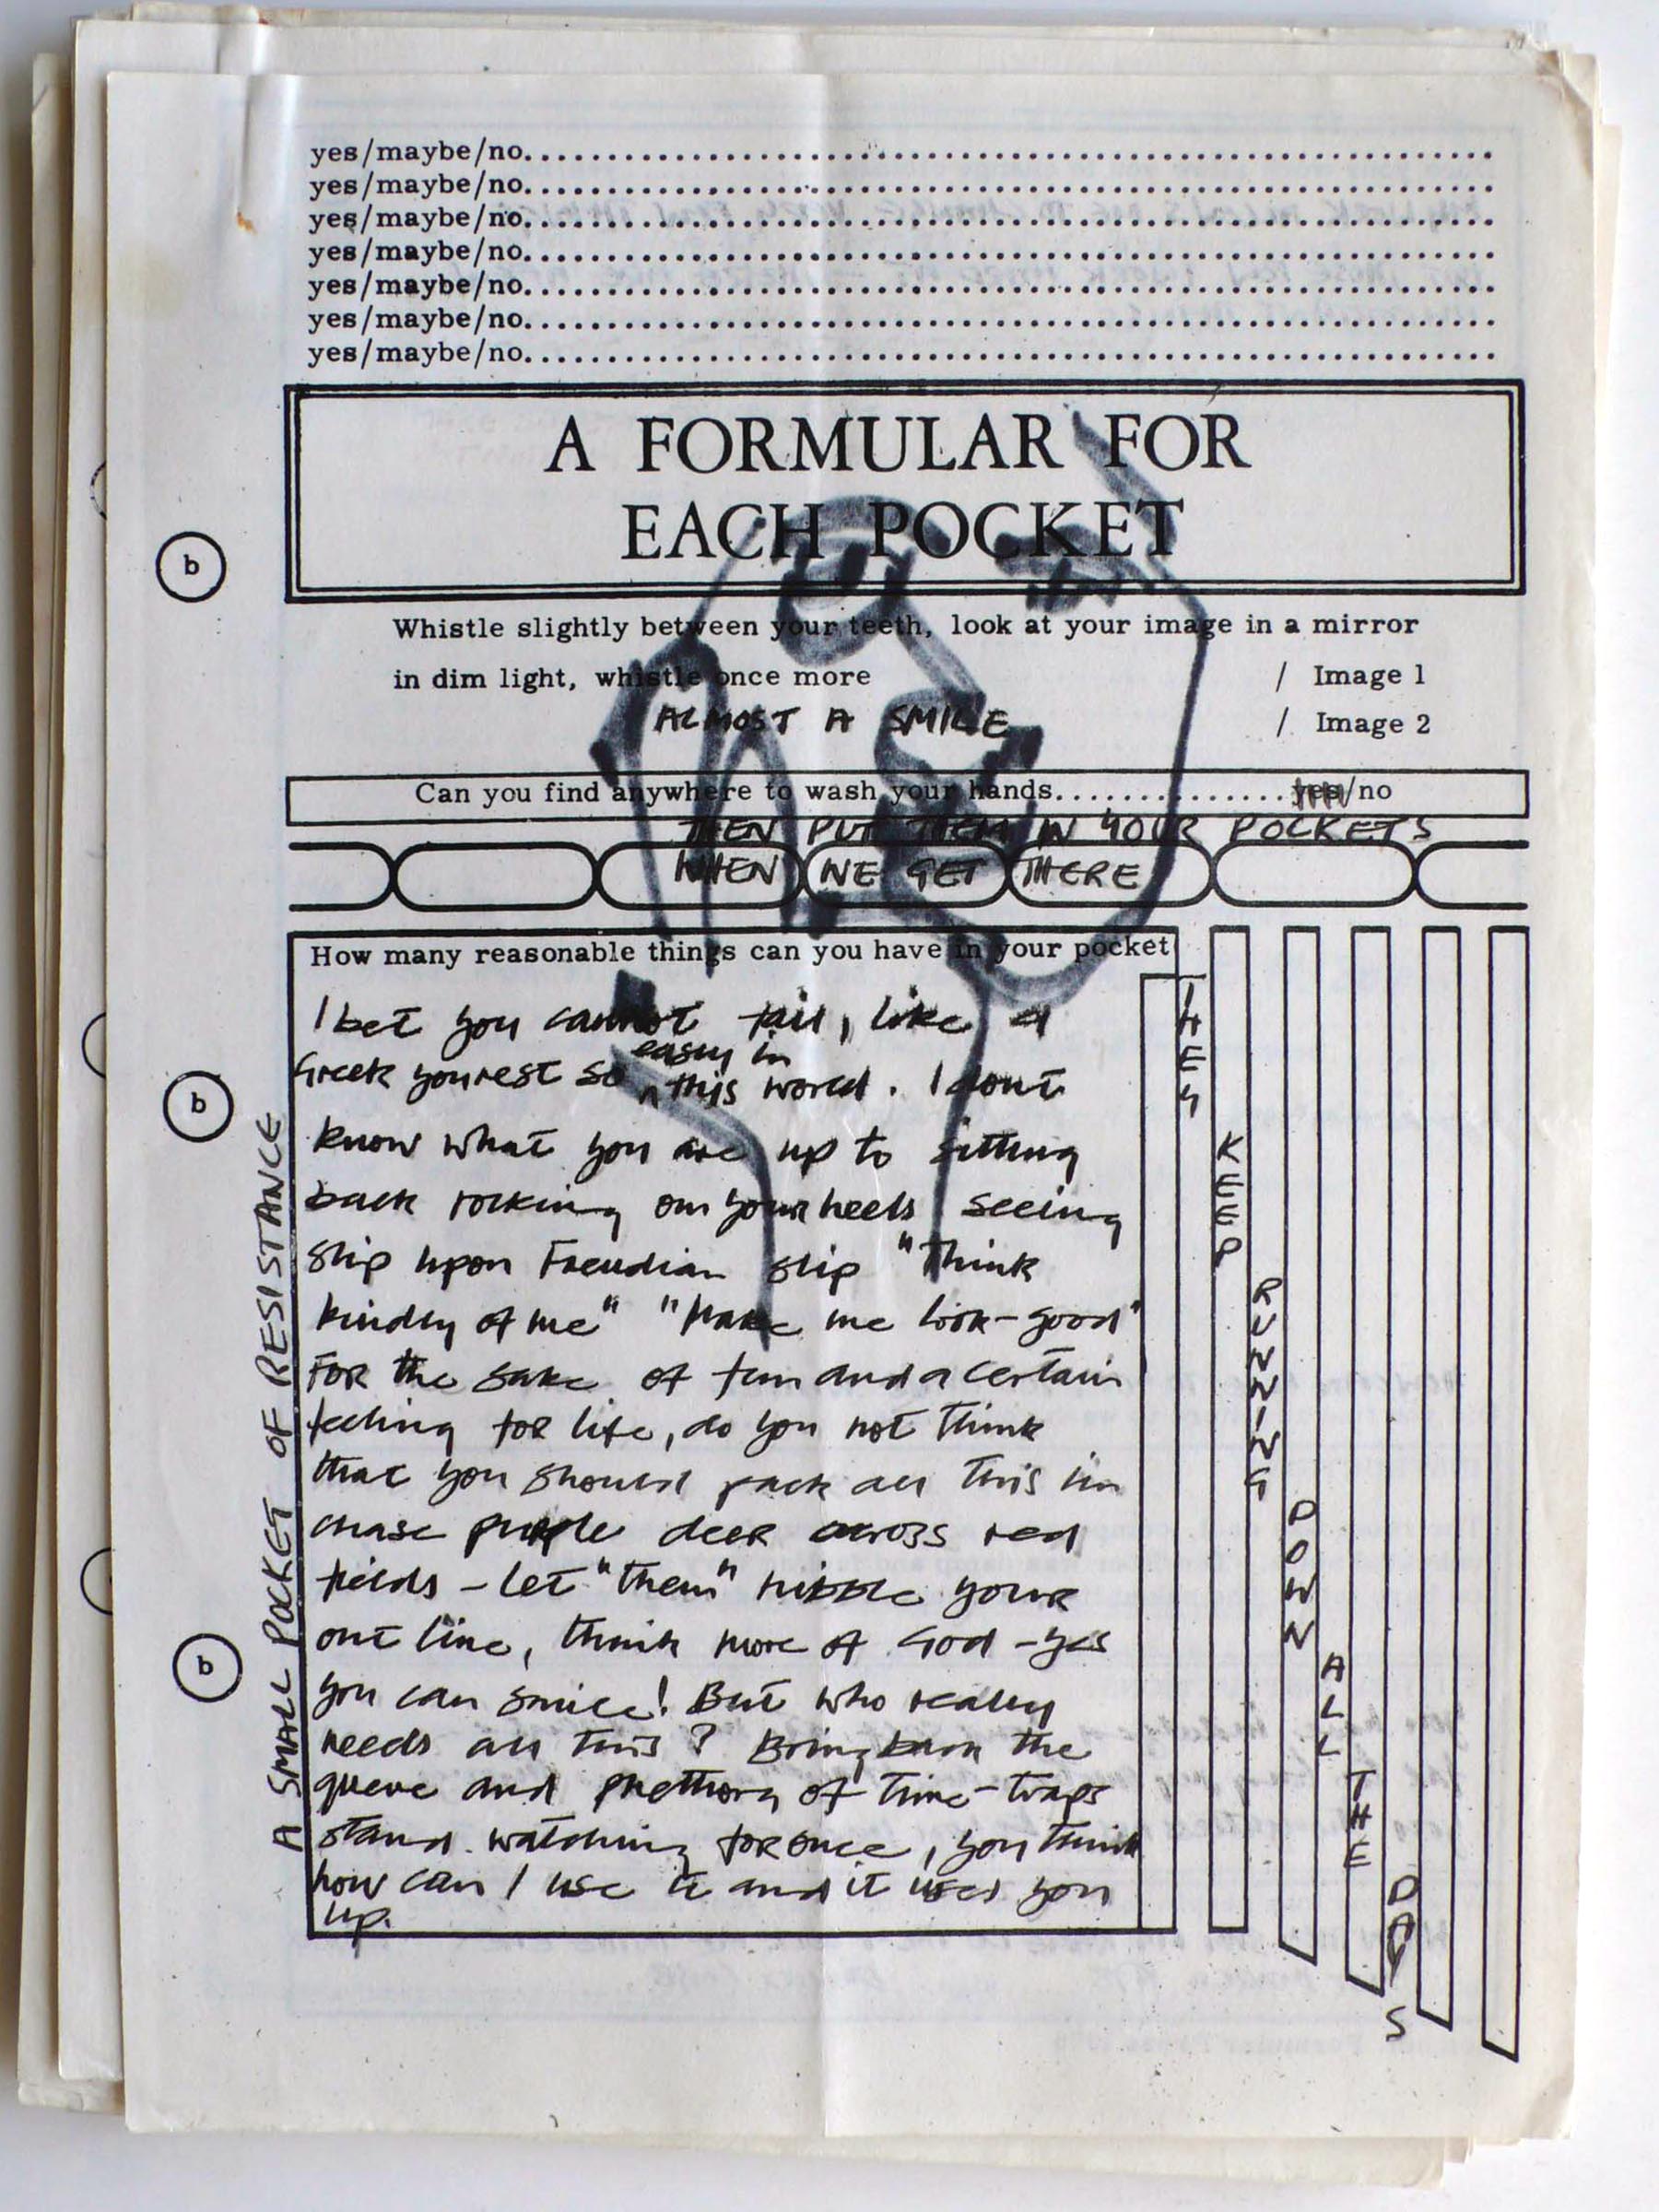 yes/maybe/no.............................................................
yes/maybe/no.............................................................
yes/maybe/no.............................................................
yes/maybe/no.............................................................
yes/maybe/no.............................................................
yes/maybe/no.............................................................
yes/maybe/no.............................................................
A FORMULAR FOR
EACH POCKET
b
Whistle slightly between your teeth, look at your image in a mirror
in dim light, whistle once more / Image 1
ALMOST A SMILE / Image 2
Can you find anywhere to wash your hands...............yes/no
THEN PUT THEM IN YOUR POCKETS
WHEN WE GET THERE
How many reasonable things can you have in your pocket
I bet you cannot fail, like a
Greek you rest so easily in
this world. I dont
b
know what you are up to sitting
back rocking on your heels seeing
slip upon Freudian slip "Think
kindly of me" "Make me look-good"
FOR the sake of fun and a certain
feeling for life, do you not think
that you should pack all this in
chase purple deer across red
fields - let "them" nibble your
out line, think more of God - yes
b
you can smile! But who really
needs all this? Bring back the
queue and of time-traps
stand watching for once, you think
how can I use it and it uses you
up.
A SMALL POCKET OF RESISTANCE
THEY
KEEP
RUNNING
DOWN
ALL
THE
DAYS